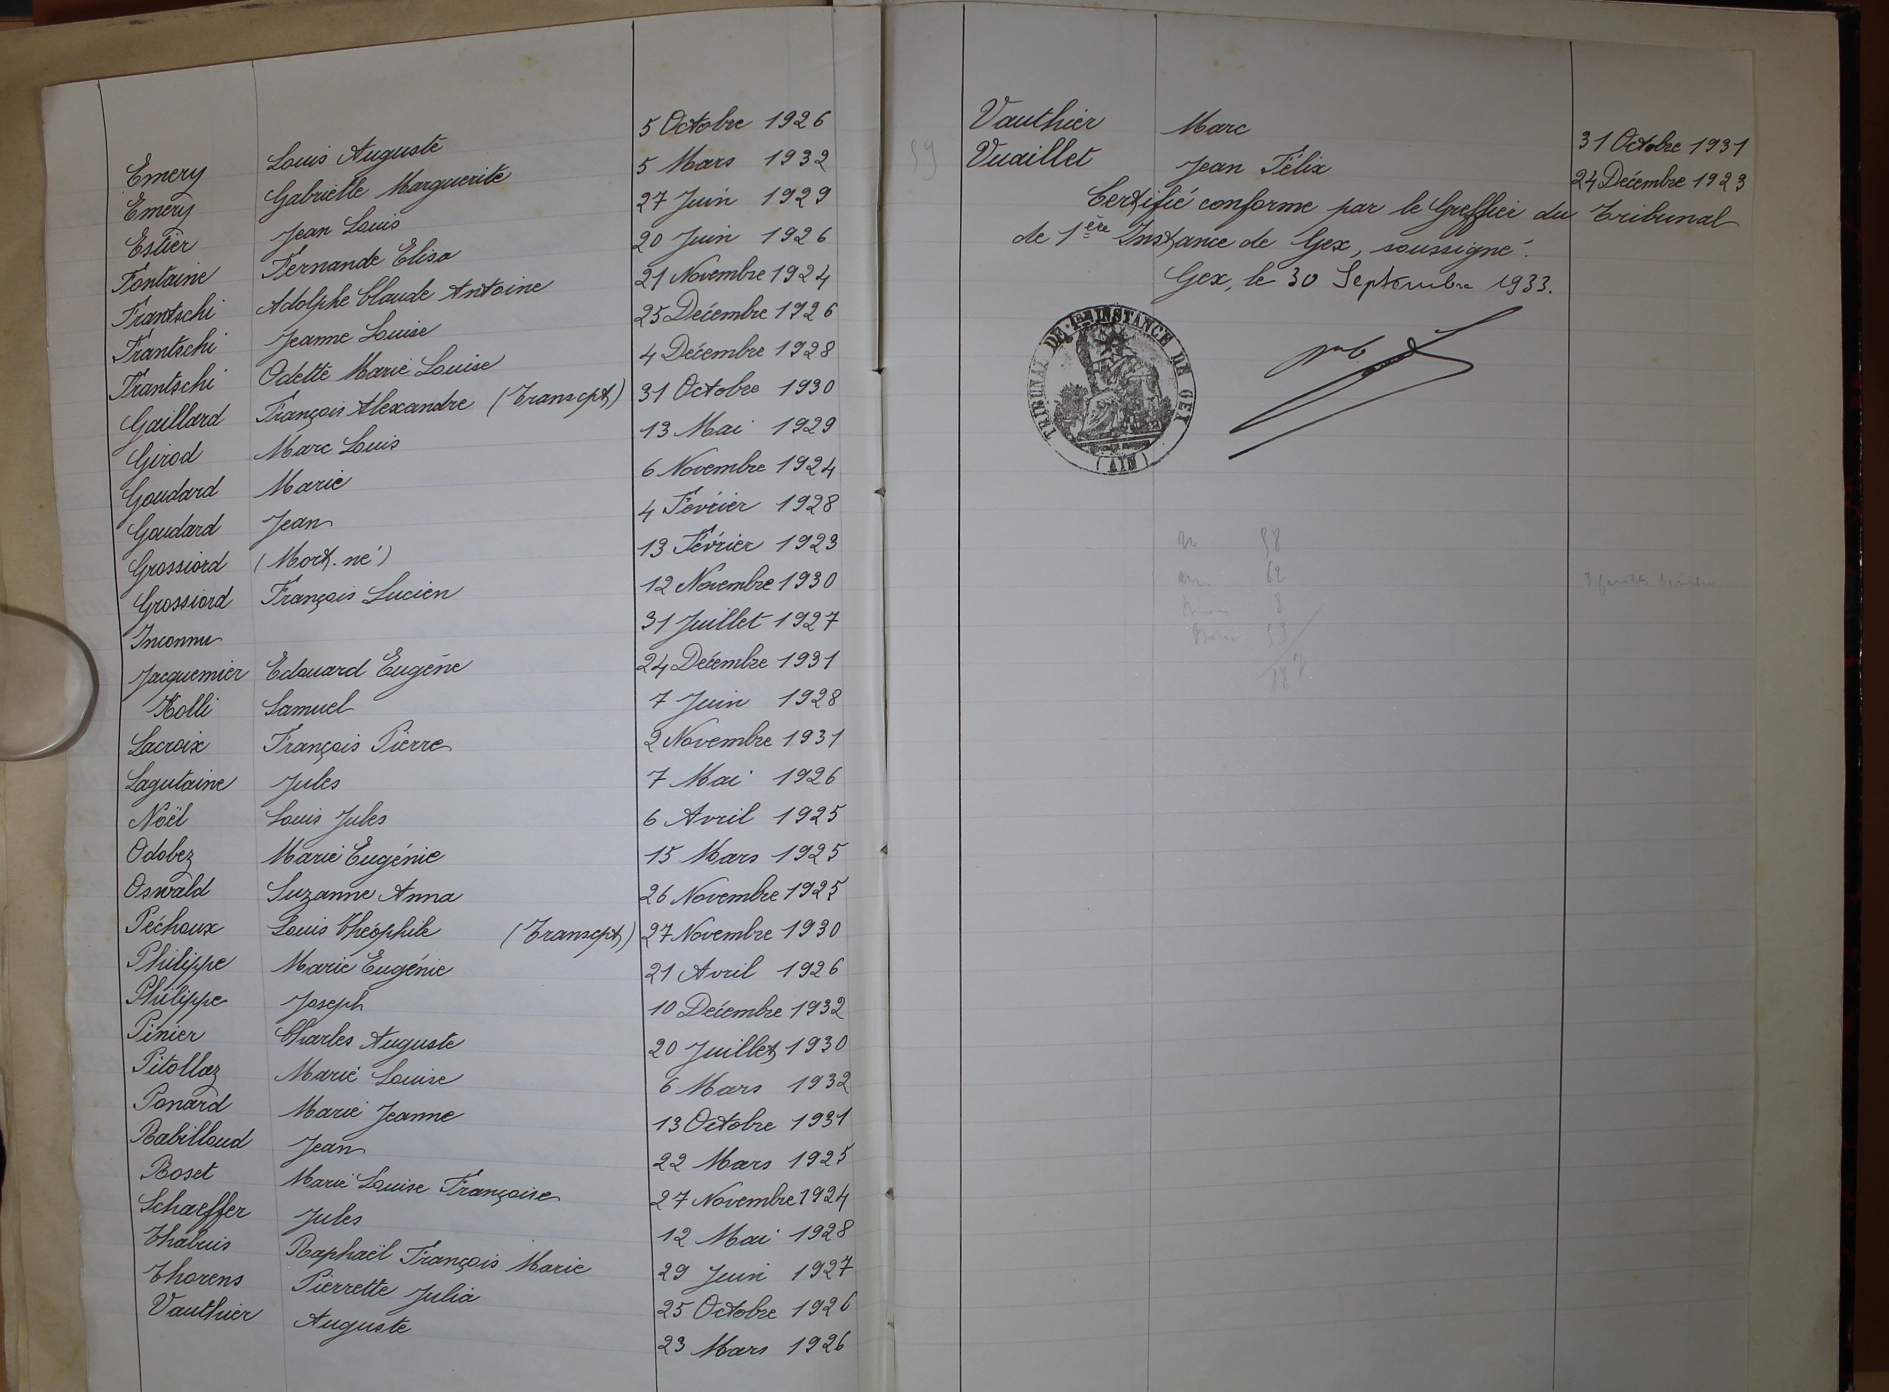 Emery Louis Auguste 5 Octobre 1926
Emery Gabrielle Marguerite 5 Mars 1932
Estier Jean Louis 27 Juin 1929
Fontaine Fernande Elisa 20 Juin 1926
Frantschi Adolphe Claude Antoine 21 Novembre 1924
Frantschi Jeanne Louise 25 Décembre 1926
Frantschi Odette Marie Louise 4 Décembre 1928
Gaillard François Alexandre (Transcpt) 31 Octobre 1930
Girod Marc Louis 13 Mai 1929
Goudard Marie 6 Novembre 1924
Goudard Jean 4 Février 1928
Grossiord (Mort-né) 13 Février 1923
Grossiord François Lucien 12 Novembre 1930
Inconnu 31 Juillet 1927
Jacquemier Edouard Eugène 24 Décembre 1931
Kolli Samuel 7 Juin 1928
Lacroix François Pierre 2 Novembre 1931
Lagutaine Jules 7 Mai 1926
Noël Louis Jules 6 Avril 1925
Odobez Marie Eugénie 15 Mars 1925
Oswald Suzanne Anna 26 Novembre 1925
Péchoux Louis Théophile (Transcpt) 27 Novembre 1930
Philippe Marie Eugénie 21 Avril 1926
Philippe Joseph 10 Décembre 1932
Pinier Charles Auguste 20 Juillet 1930
Pitollaz Marie Louise 6 Mars 1932
Ponard Marie Jeanne 13 Octobre 1931
Rabilloud Jean 22 Mars 1925
Roset Marie Louise Françoise 27 Novembre 1924
Schaeffer Jules 12 Mai 1928
Thabuis Raphaël François Marie 29 Juin 1927
Thorens Pierrette Julia 25 Octobre 1926
Vauthier Auguste 23 Mars 1926
59
Vauthier Marc 31 Octobre 1931
Vuaillet Jean Félix 24 Décembre 1923
Certifié conforme par le Greffier du Tribunal
de 1ère Instance de Gex, soussigné.
Gex, le 30 Septembre 1933.
TRIBUNAL DE 1ère INSTANCE DE GEX
(AIN)